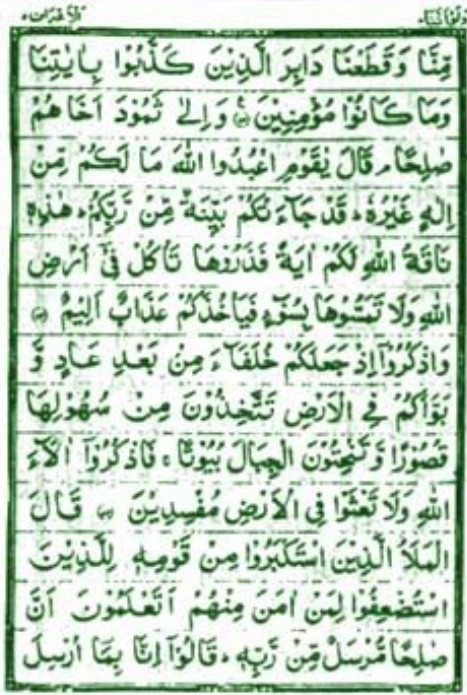 ولواننا ٨ الاعراف ٧
مِّنَّا وَقَطَعْنَا دَابِرَ الَّذِيْنَ كَذَّبُوْا بِاٰيٰتِنَا
وَمَا كَانُوْا مُؤْمِنِيْنَ وَاِلٰى ثَمُوْدَ اَخَاهُمْ
صٰلِحًا ۘ قَالَ يٰقَوْمِ اعْبُدُوا اللهَ مَا لَكُمْ مِّنْ
اِلٰهٍ غَيْرُهٗ ؕ قَدْ جَآءَتْكُمْ بَيِّنَةٌ مِّنْ رَّبِّكُمْ ؕ هٰذِهٖ
نَاقَةُ اللهِ لَكُمْ اٰيَةً فَذَرُوْهَا تَاْكُلْ فِيْۤ اَرْضِ
اللهِ وَلَا تَمَسُّوْهَا بِسُوْٓءٍ فَيَاْخُذَكُمْ عَذَابٌ اَلِيْمٌ
وَاذْكُرُوْۤا اِذْ جَعَلَكُمْ خُلَفَآءَ مِنْۢ بَعْدِ عَادٍ وَّ
بَوَّاَكُمْ فِي الْاَرْضِ تَتَّخِذُوْنَ مِنْ سُهُوْلِهَا
قُصُوْرًا وَّتَنْحِتُوْنَ الْجِبَالَ بُيُوْتًا ۚ فَاذْكُرُوْۤا اٰلَآءَ
اللهِ وَلَا تَعْثَوْا فِي الْاَرْضِ مُفْسِدِيْنَ قَالَ
الْمَلَاُ الَّذِيْنَ اسْتَكْبَرُوْا مِنْ قَوْمِهٖ لِلَّذِيْنَ
اسْتُضْعِفُوْا لِمَنْ اٰمَنَ مِنْهُمْ اَتَعْلَمُوْنَ اَنَّ
صٰلِحًا مُّرْسَلٌ مِّنْ رَّبِّهٖ ؕ قَالُوْۤا اِنَّا بِمَاۤ اُرْسِلَ